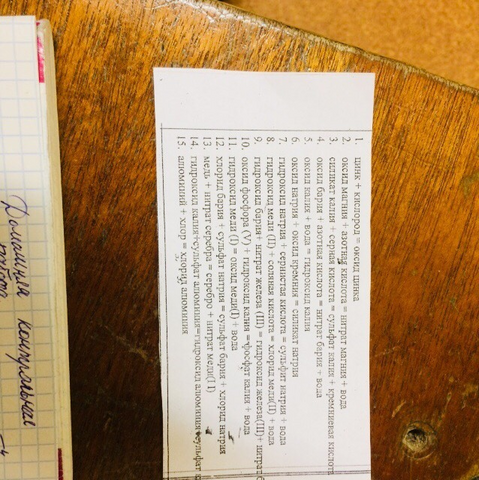 1. цинк + кислород = оксид цинка
2. оксид магния + азотная кислота = нитрат магния + вода
3. силикат калия + серная кислота = сульфат калия + кремниевая кислота
4. оксид бария + азотная кислота = нитрат бария + вода
5. оксид калия + вода = гидроксид калия
6. оксид натрия + оксид кремния = силикат натрия
7. гидроксид натрия + сернистая кислота = сульфит натрия + вода
8. гидроксид меди (II) + соляная кислота = хлорид меди(II) + вода
9. гидроксид бария+ нитрат железа (III) = гидроксид железа(III)+ нитрат б
10. оксид фосфора (V) + гидроксид калия =фосфат калия + вода
11. гидроксид меди (I) = оксид меди(I) + вода
12. хлорид бария + сульфат натрия = сульфат бария + хлорид натрия
13. медь + нитрат серебра = серебро + нитрат меди(I I)
14. гидроксид калия+сульфат алюминия=гидроксид алюминия +сульфат к
15. алюминий + хлор = хлорид алюминия
Домашняя контрольная
работа